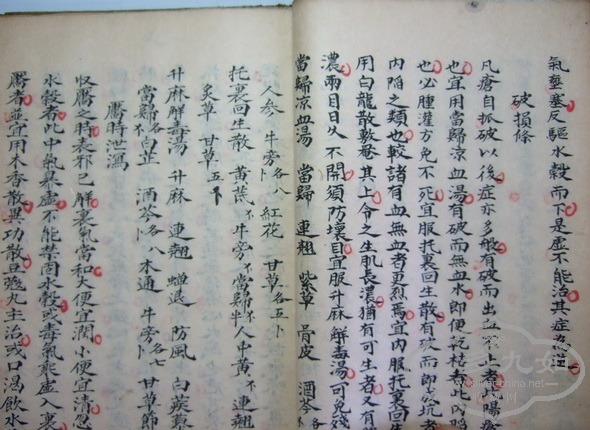 氣壅塞反驅水穀而下是虛不能治其症為
破損條
凡瘡自抓破以後症亦多般有破而出血不止者陽瘡
也宜用當歸涼血湯有破而無血水即便乾枯者此以陷
也必腫灌方免不死宜服托裏回生散有破而即成坑者
內陷之類也較諸有血無血者更烈焉宜內服托裏回生
用白龍散敷奄其上令之生肌長濃猶有可生者又有
濃兩目日久不開須防壞目宜服升麻解毒湯可免殘
當歸涼血湯 當歸 連翹 紫草 骨皮 酒芩
人參 牛旁各八 紅花 甘草各五卜
托裏回生散 黃芪 牛旁 當歸 人中黃 連翹
炙草 甘草五卜
升麻解毒湯 升麻 連翹 蟬退 防風 白蒺
當歸各卜 白芷 酒芩各八 木通 牛旁各七 甘草節
靨時泄瀉
收靨之時表邪已解裏氣當和大便宜潤小便宜清忽
水穀者此中氣暴虛不能禁固水穀或毒氣乘虛入裏
靨者並宜用木香散異功散豆蔻丸主治或口渴飲水
九如
china.net